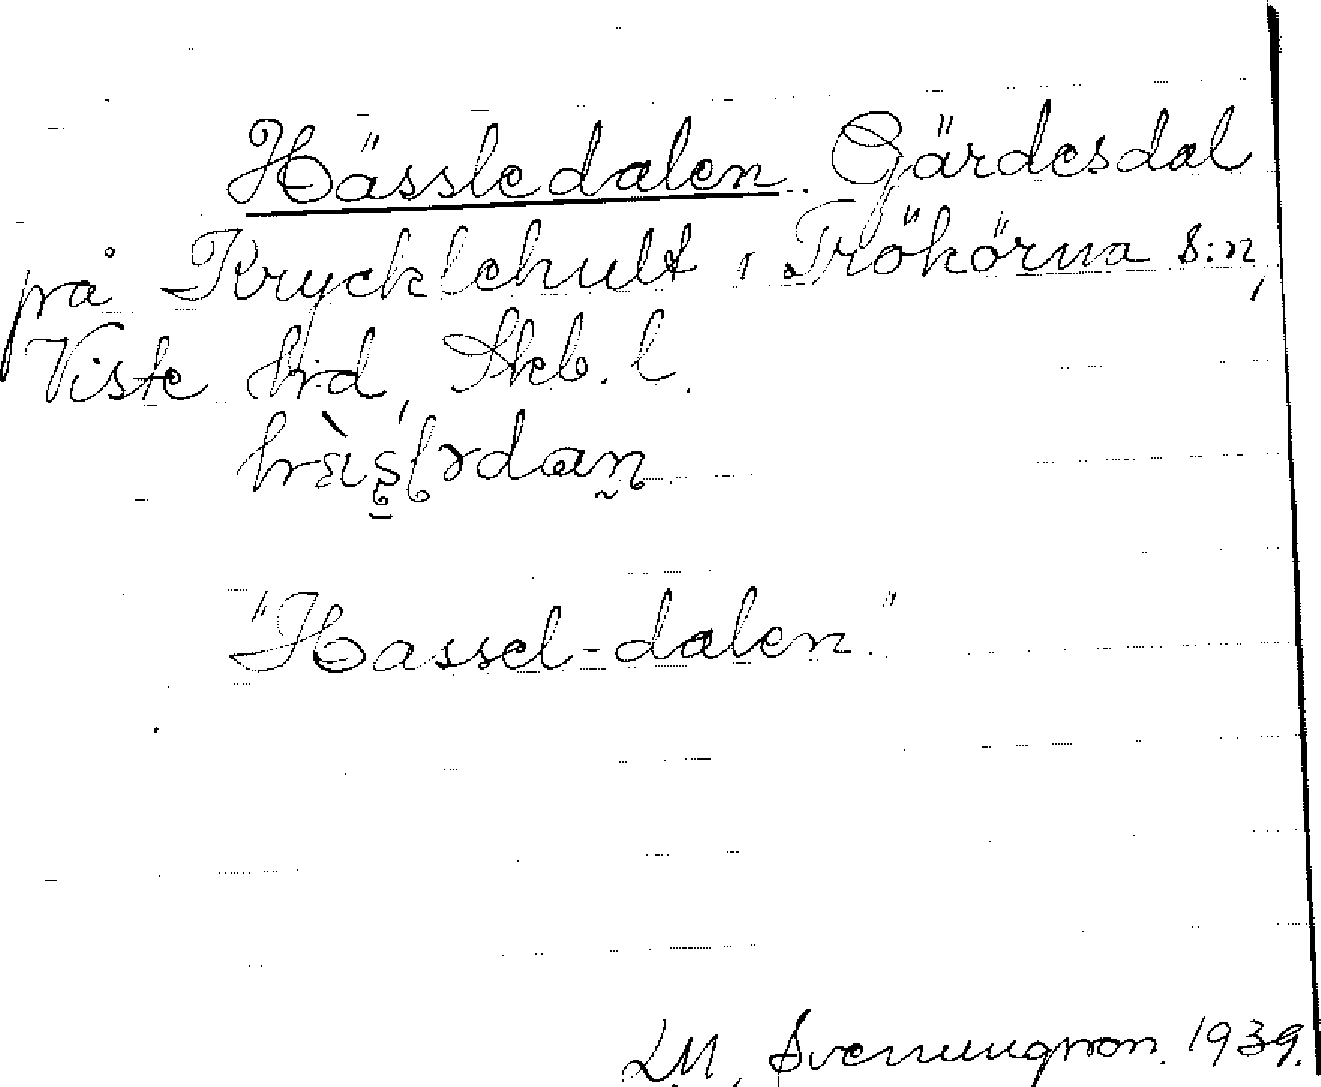 Hässledalen. Gärdesdal
på Krycklehult i Trökörna s:n,
Viste hrd, Skb. l.
"Hassel-dalen."
L.M. Svenungson. 1939.